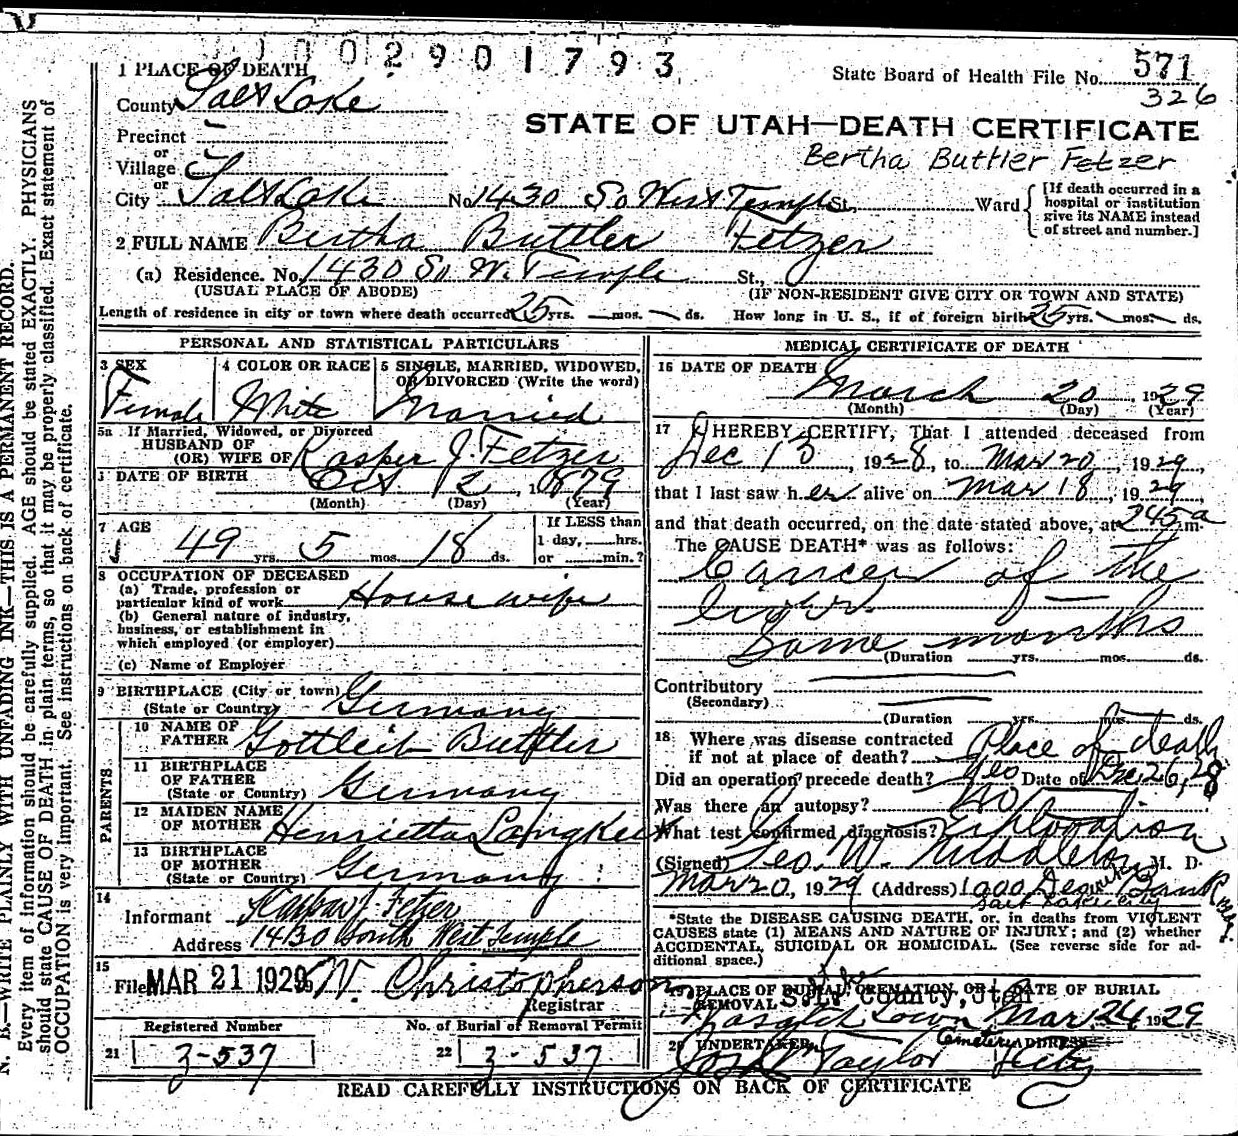 0 0 2 9 0 1 7 9 3
1 PLACE OF DEATH
State Board of Health File No. 571
326
County Salt Lake
STATE OF UTAH—DEATH CERTIFICATE
Precinct
or
Village
or
Bertha Buttler Fetzer
City Salt Lake No. 1430 So West Temple St., Ward
[If death occurred in a
hospital or institution
give its NAME instead
of street and number.]
2 FULL NAME Bertha Buttler Fetzer
(a) Residence. No. 1430 So W. Temple St.,
(USUAL PLACE OF ABODE) (IF NON-RESIDENT GIVE CITY OR TOWN AND STATE)
Length of residence in city or town where death occurred 25 yrs. mos. ds. How long in U. S., if of foreign birth 25 yrs. mos. ds.
PERSONAL AND STATISTICAL PARTICULARS
3 SEX 4 COLOR OR RACE 5 SINGLE, MARRIED, WIDOWED,
OR DIVORCED (Write the word)
Female White Married
5a If Married, Widowed, or Divorced
HUSBAND OF
(OR) WIFE OF Kasper J. Fetzer
DATE OF BIRTH Oct 12, 1879
(Month) (Day) (Year)
7 AGE
49 yrs. 5 mos. 18 ds.
If LESS than
1 day, hrs.
or min.?
8 OCCUPATION OF DECEASED
(a) Trade, profession or
particular kind of work Housewife
(b) General nature of industry,
business, or establishment in
which employed (or employer)
(c) Name of Employer
9 BIRTHPLACE (City or town)
(State or Country) Germany
PARENTS
10 NAME OF
FATHER Gottleib Buttler
11 BIRTHPLACE
OF FATHER
(State or Country) Germany
12 MAIDEN NAME
OF MOTHER Henrietta
13 BIRTHPLACE
OF MOTHER
(State or Country) Germany
14
Informant Kaspar J Fetzer
Address 1430 South West Temple
15
Filed MAR 21 1929 W. Christopherson
Registrar
Registered Number No. of Burial of Removal Permit
21 3-537 22 3-537
MEDICAL CERTIFICATE OF DEATH
16 DATE OF DEATH
March 20, 1929
(Month) (Day) (Year)
17 I HEREBY CERTIFY, That I attended deceased from
Dec 15, 1928, to Mar 20, 1929,
that I last saw her alive on Mar 18, 1929,
and that death occurred, on the date stated above, at 245 a m.
The CAUSE DEATH* was as follows:
Cancer of the
liver.
Some months
(Duration yrs. mos. ds.
Contributory
(Secondary)
(Duration yrs. mos. ds.
18 Where was disease contracted
if not at place of death? Place of death
Did an operation precede death? Yes Date of Dec 26, 28
Was there an autopsy? No
What test confirmed diagnosis? Exploration
(Signed) Geo. W. Middleton M. D.
Mar 20, 1929 (Address) 1000 Deseret Bank
Salt Lake City
*State the DISEASE CAUSING DEATH, or, in deaths from VIOLENT
CAUSES state (1) MEANS AND NATURE OF INJURY; and (2) whether
ACCIDENTAL, SUICIDAL OR HOMICIDAL. (See reverse side for ad-
ditional space.)
19 PLACE OF BURIAL, CREMATION, OR DATE OF BURIAL
REMOVAL S.L. County, Utah
Wasatch Lawn Mar 24 1929
Cemetery
20 UNDERTAKER ADDRESS
Taylor City
READ CAREFULLY INSTRUCTIONS ON BACK OF CERTIFICATE
N. B.—WRITE PLAINLY WITH UNFADING INK—THIS IS A PERMANENT RECORD.
Every item of information should be carefully supplied. AGE should be stated EXACTLY. PHYSICIANS
should state CAUSE OF DEATH in plain terms, so that it may be properly classified. Exact statement of
OCCUPATION is very important. See instructions on back of certificate.